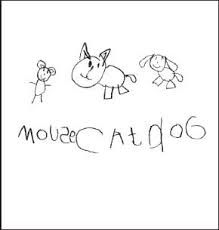 mouse CAt dOG